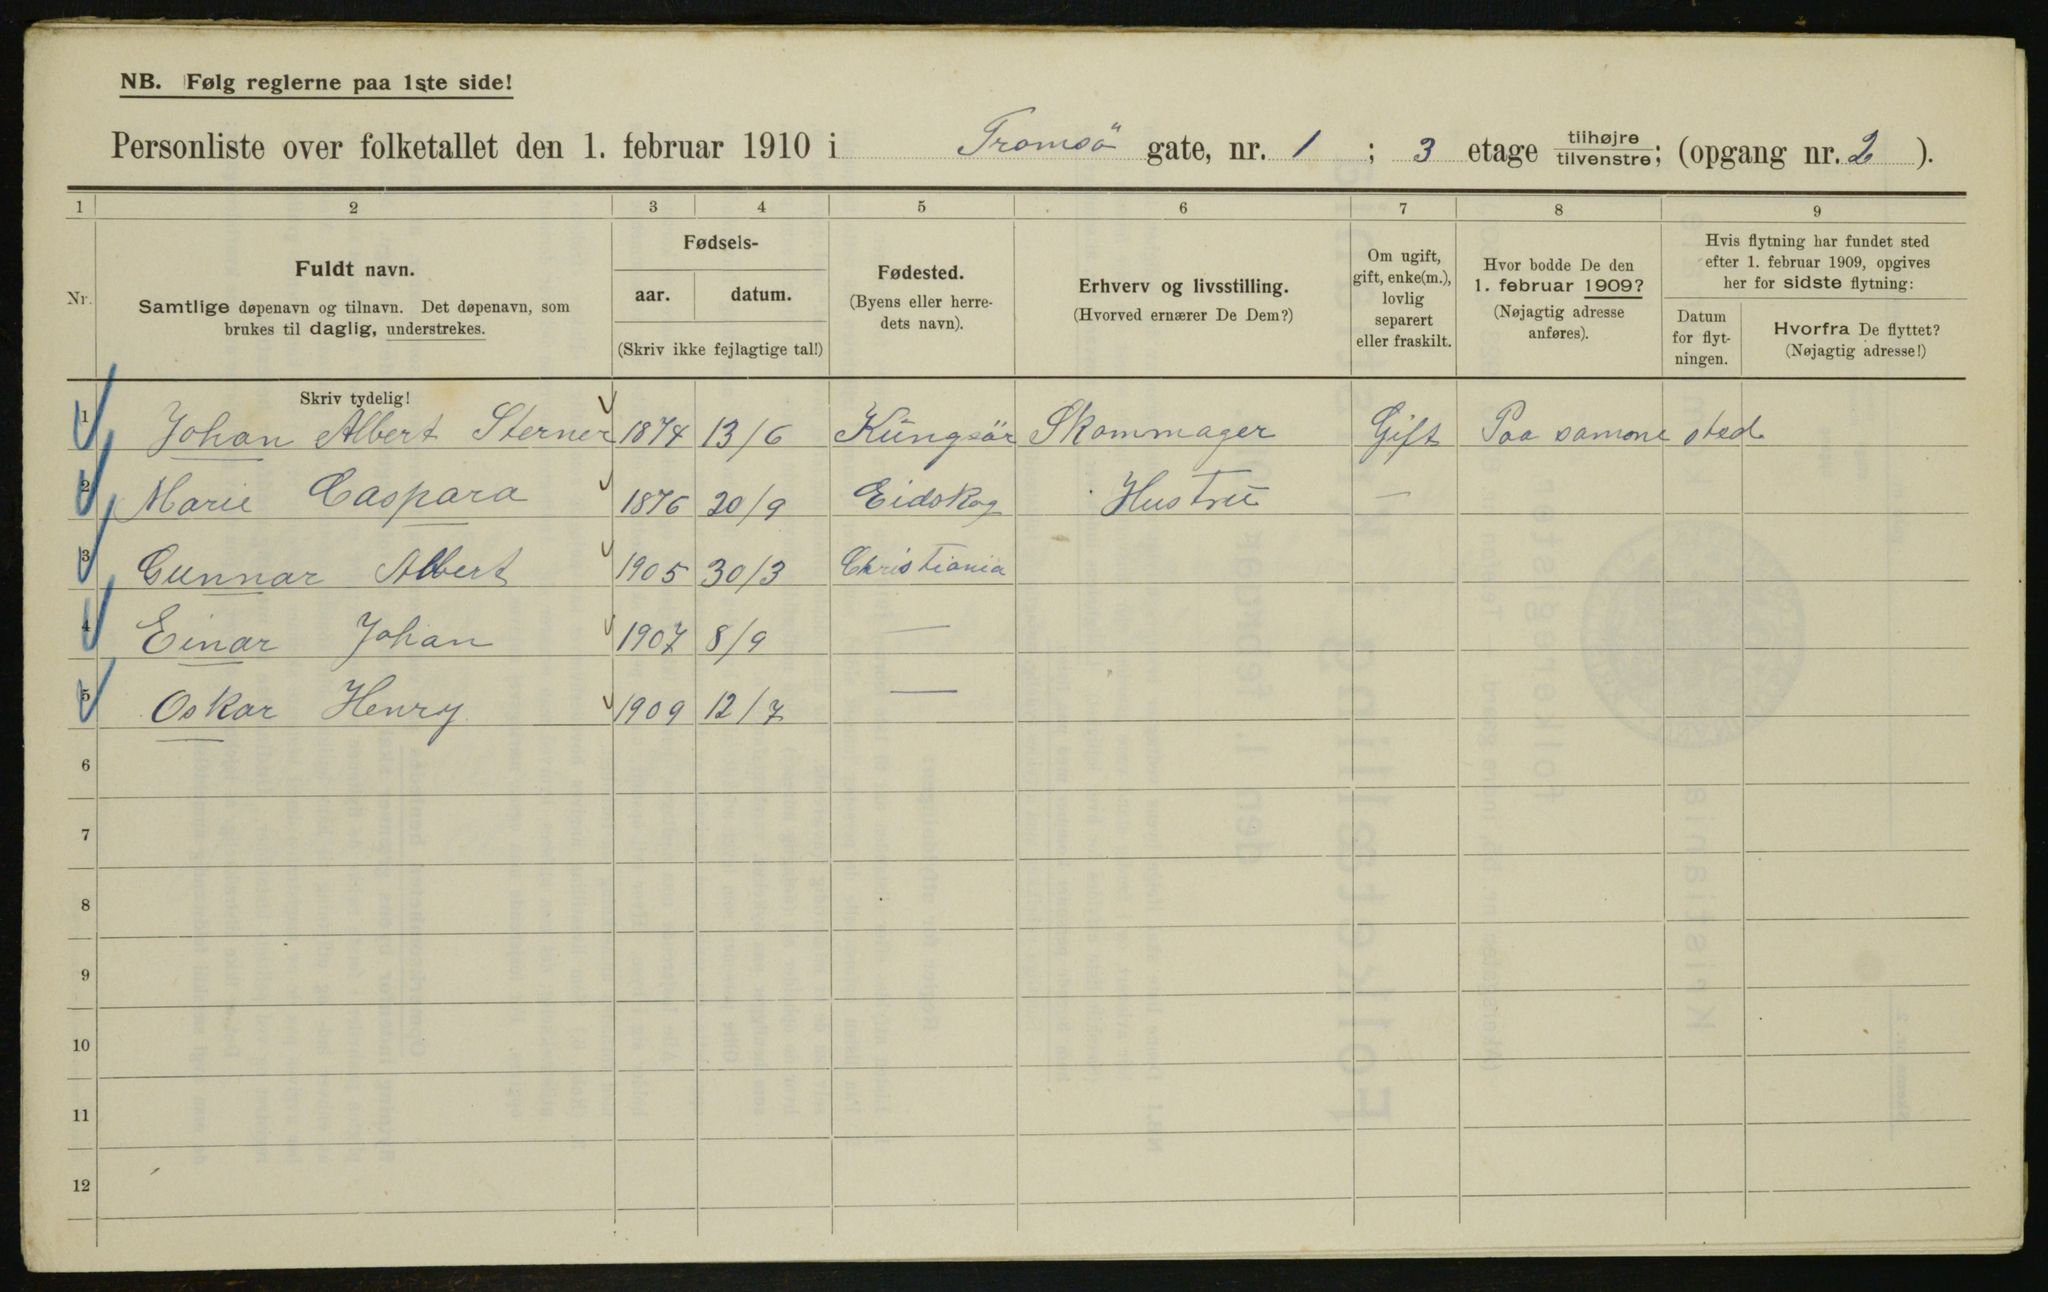 NB. Følg reglerne paa 1ste side!
Personliste over folketallet den 1. februar 1910 i Tromsö gate, nr. 1 ; 3 etage tilhøjre / tilvenstre; (opgang nr. 2 ).
1 2 3 4 5 6 7 8 9
Nr.
Fuldt navn.
Samtlige døpenavn og tilnavn. Det døpenavn, som
brukes til daglig, understrekes.
Fødsels-
aar. datum.
(Skriv ikke fejlagtige tal!)
Fødested.
(Byens eller herre-
dets navn).
Erhverv og livsstilling.
(Hvorved ernærer De Dem?)
Om ugift,
gift, enke(m.),
lovlig
separert
eller fraskilt.
Hvor bodde De den
1. februar 1909?
(Nøjagtig adresse
anføres).
Hvis flytning har fundet sted
efter 1. februar 1909, opgives
her for sidste flytning:
Datum
for flyt-
ningen.
Hvorfra De flyttet?
(Nøjagtig adresse!)
Skriv tydelig!
1 Johan Albert Sterner 1874 13/6 Küngsör Skommager Gift Paa samme sted
2 Marie Caspara 1876 20/9 Eidskog Hustru —
3 Gunnar Albert 1905 30/3 Christiania
4 Einar Johan 1907 8/9 —
5 Oskar Henry 1909 12/7 —
6
7
8
9
10
11
12